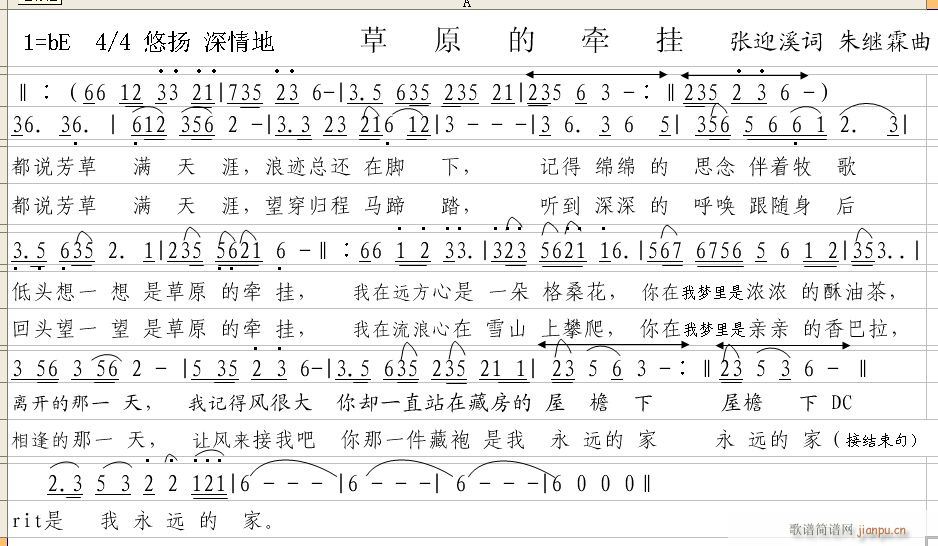 A
1=bE 4/4 悠扬 深情地 草 原 的 牵 挂 张迎溪词 朱继霖曲
‖：(66 12 33 21|735 23 6-|3.5 635 235 21|235 6 3 -：‖235 2 3 6 -)
36. 36. | 612 356 2 -|3.3 23 216 12|3 - - -|3 6. 3 6 5| 356 5 6 6 1 2. 3|
都说芳草 满 天 涯，浪迹总还 在脚 下， 记得 绵绵 的 思念 伴着牧 歌
都说芳草 满 天 涯，望穿归程 马蹄 踏， 听到 深深 的 呼唤 跟随身 后
3.5 635 2. 1|235 5621 6 -‖：66 1 2 33.|323 5621 16.|567 6756 5 6 1 2|353..|
低头想一 想 是草原 的牵 挂， 我在远方心是 一朵 格桑花， 你在我梦里是浓浓 的酥油茶，
回头望一 望 是草原 的牵 挂， 我在流浪心在 雪山 上攀爬， 你在我梦里是亲亲 的香巴拉，
3 56 3 56 2 - |5 35 2 3 6-|3.5 635 235 21 1| 23 5 6 3 -：‖23 5 3 6 - ‖
离开的那一 天， 我记得风很大 你却一直站在藏房的 屋 檐 下 屋檐 下 DC
相逢的那一 天， 让风来接我吧 你那一件藏袍 是我 永 远的 家 永 远的 家(接结束句)
2.3 5 3 2 2 121|6 - - -|6 - - -| 6 - - -|6 0 0 0‖
rit是 我 永 远 的 家。
歌谱简谱网 jianpu.cn